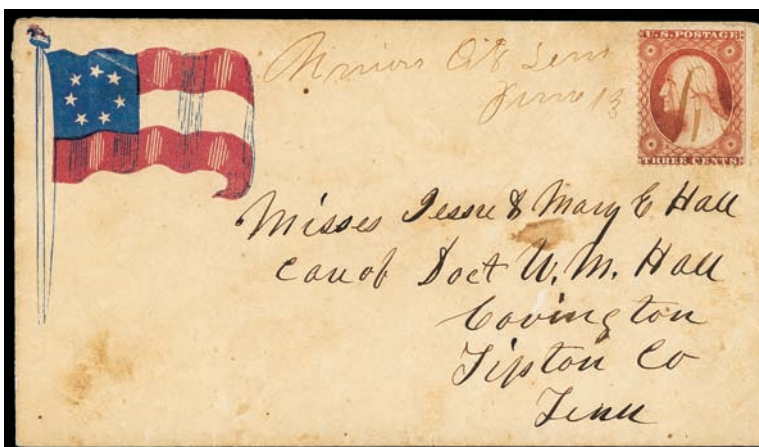 Union Cit Tenn
June 13
U.S. POSTAGE
THREE CENTS
Misses Jessie & Mary E Hall
care of Doct W. M. Hall
Covington
Tipton Co
Tenn